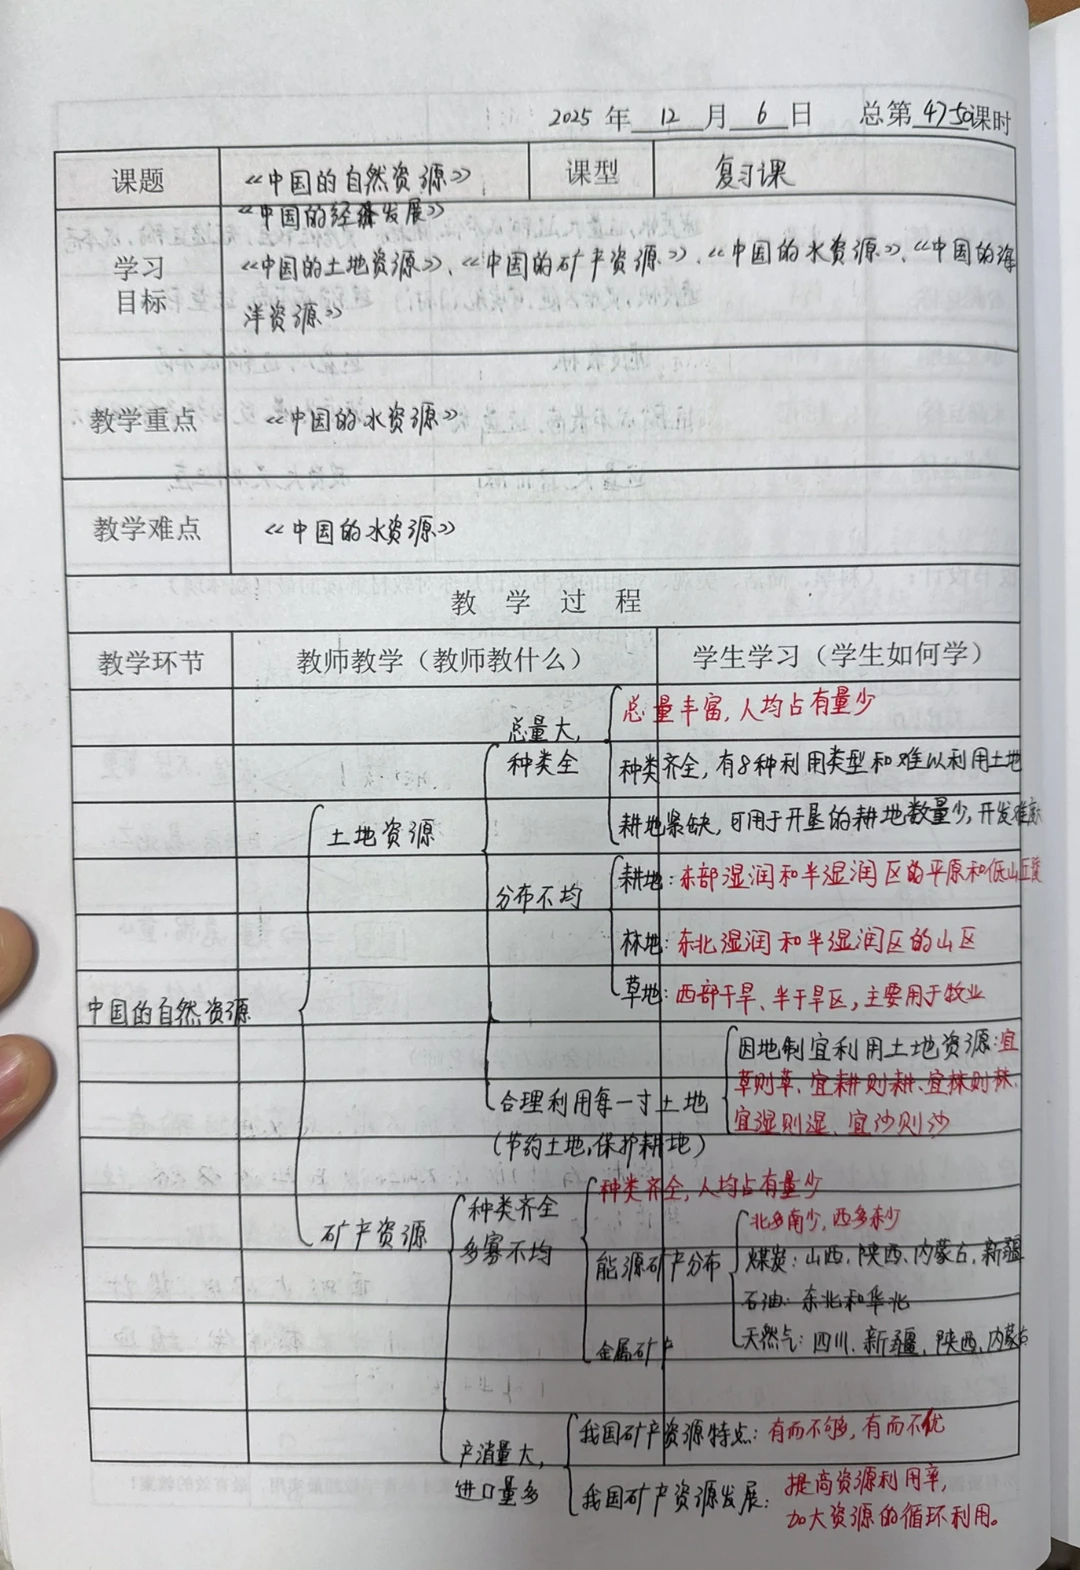 2025 年 12 月 6 日 总第 4750 课时
课题 《中国的自然资源》 课型 复习课
《中国的经济发展》
学习目标 《中国的土地资源》、《中国的矿产资源》、《中国的水资源》、《中国的海
洋资源》
教学重点 《中国的水资源》
教学难点 《中国的水资源》
教 学 过 程
教学环节 教师教学（教师教什么） 学生学习（学生如何学）
中国的自然资源
土地资源
总量大,
种类全
总量丰富,人均占有量少
种类齐全,有8种利用类型和难以利用土地
耕地紧缺,可用于开垦的耕地数量少,开发难度大
分布不均
耕地:东部湿润和半湿润区的平原和低山丘陵
林地:东北湿润和半湿润区的山区
草地:西部干旱、半干旱区,主要用于牧业
合理利用每一寸土地
(节约土地,保护耕地)
因地制宜利用土地资源:宜
草则草、宜耕则耕、宜林则林、
宜湿则湿、宜沙则沙
矿产资源
种类齐全
多寡不均
种类齐全,人均占有量少
能源矿产分布
北多南少,西多东少
煤炭:山西、陕西、内蒙古、新疆
石油:东北和华北
天然气:四川、新疆、陕西、内蒙古
金属矿产
产消量大,
进口量多
我国矿产资源特点:有而不够,有而不优
我国矿产资源发展:提高资源利用率,
加大资源的循环利用。